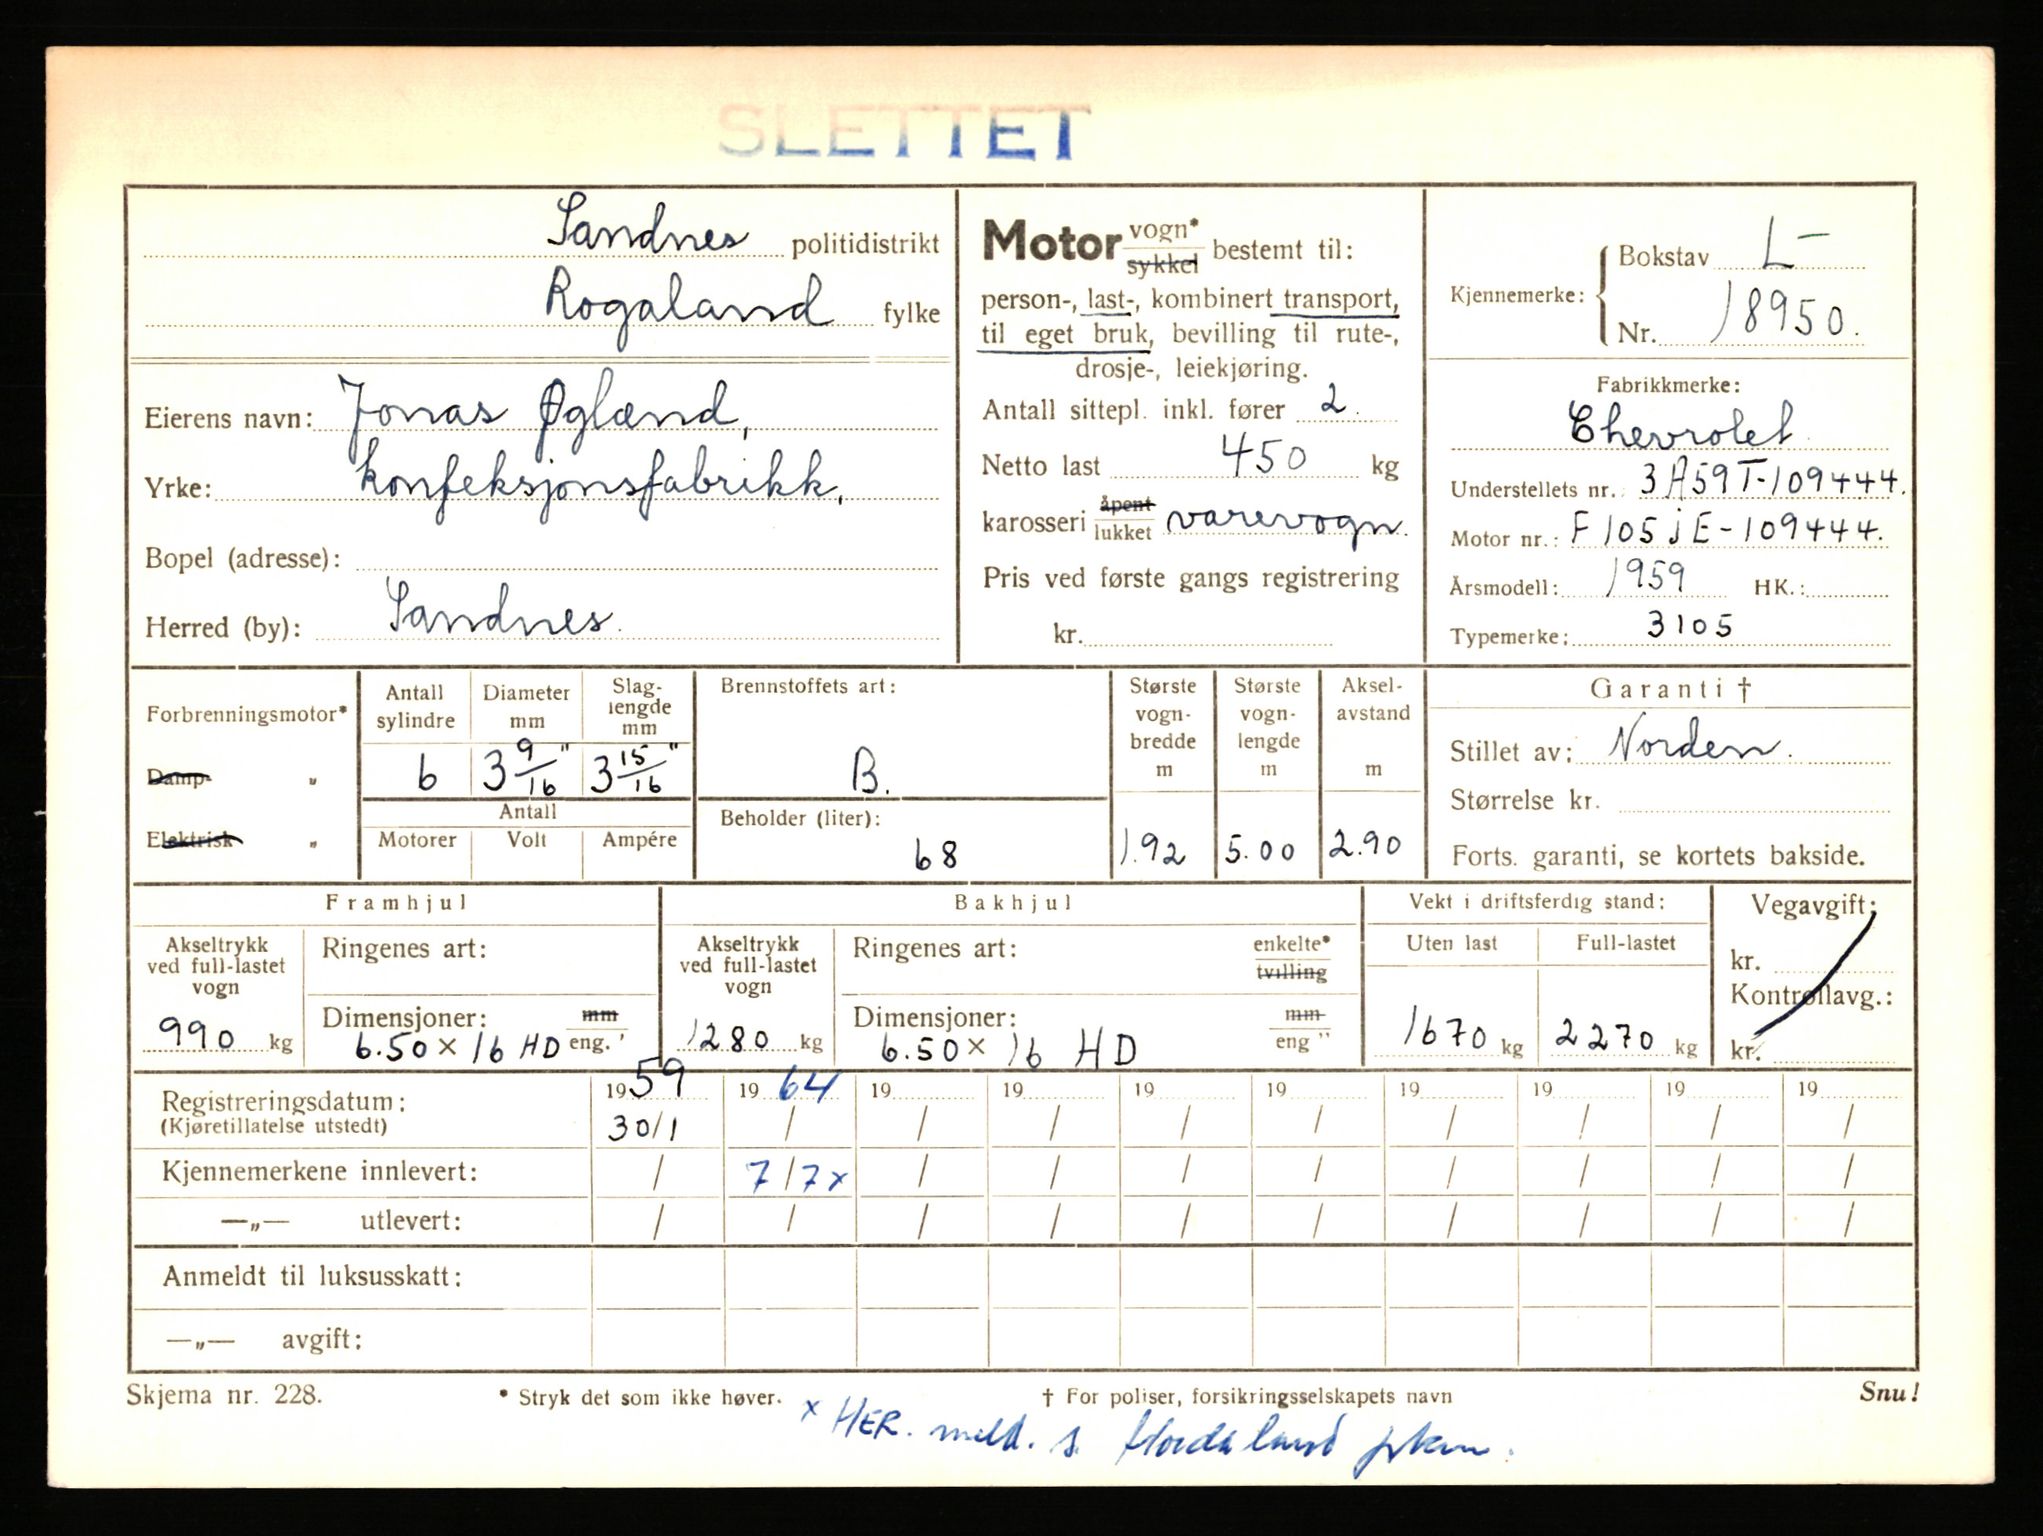 SLETTET
Sandnes politidistrikt
Rogaland fylke
Eierens navn: Jonas Øglænd,
Yrke: konfeksjonsfabrikk.
Bopel (adresse):
Herred (by): Sandnes.
Motor vogn* sykkel bestemt til:
person-, last-, kombinert transport,
til eget bruk, bevilling til rute-,
drosje-, leiekjøring.
Antall sittepl. inkl. fører 2.
Netto last 450 kg
karosseri åpent lukket varevogn.
Pris ved første gangs registrering
kr.
Kjennemerke: Bokstav L-
Nr. 18950.
Fabrikkmerke:
Chevrolet
Understellets nr.: 3A59T-109444.
Motor nr.: F105JE-109444.
Årsmodell: 1959 HK.:
Typemerke: 3105
Forbrenningsmotor*
Damp- „
Elektrisk „
Antall sylindre 6
Diameter mm 3 9/16"
Slag-lengde mm 3 15/16"
Antall
Motorer Volt Ampére
Brennstoffets art:
B.
Beholder (liter):
68
Største vogn-bredde m 1.92
Største vogn-lengde m 5.00
Aksel-avstand m 2.90
Garanti †
Stillet av: Norden.
Størrelse kr.
Forts. garanti, se kortets bakside.
Framhjul
Akseltrykk ved full-lastet vogn
990 kg
Ringenes art:
Dimensjoner: mm eng."
6.50 x 16 HD
Bakhjul
Akseltrykk ved full-lastet vogn
1280 kg
Ringenes art: enkelte* tvilling
Dimensjoner: mm eng"
6.50 x 16 HD
Vekt i driftsferdig stand:
Uten last Full-lastet
1670 kg 2270 kg
Vegavgift:
kr.
Kontrollavg.:
kr.
Registreringsdatum: 1959 1964 19 19 19 19 19 19 19 19
(Kjøretillatelse utstedt) 30/1 / / / / / / / / /
Kjennemerkene innlevert: / 7/7x / / / / / / / /
—„— utlevert: / / / / / / / / / /
Anmeldt til luksusskatt:
—„— avgift:
Skjema nr. 228. * Stryk det som ikke høver. † For poliser, forsikringsselskapets navn Snu!
x HER. meld. s. Hordaland